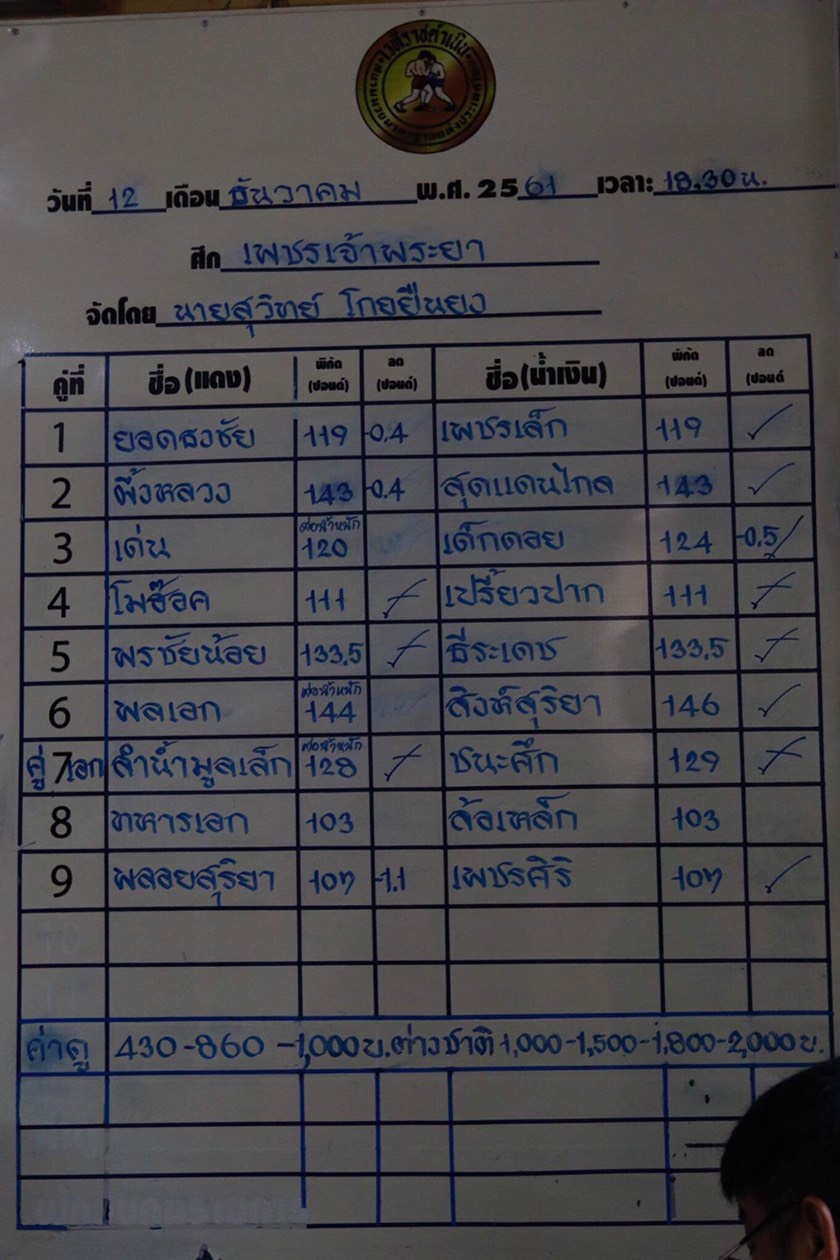 เวทีราชดำเนิน
วันที่ 12 เดือน ธันวาคม พ.ศ. 2561 เวลา: 18.30 น.
ศึก เพชรเจ้าพระยา
จัดโดย นายสุวิทย์ โกยยืนยง
คู่ที่ ชื่อ (แดง) พิกัด (ปอนด์) ลด (ปอนด์) ชื่อ (น้ำเงิน) พิกัด (ปอนด์) ลด (ปอนด์
1 ยอดธงชัย 119 -0.4 เพชรเล็ก 119 ✓
2 ผึ้งหลวง 143 -0.4 สุดแดนไกล 143 ✓
3 เด่น ต่อน้ำหนัก 120 เด็กดอย 124 -0.5
4 โมฮ็อค 111 เปรี้ยวปาก 111
5 พรชัยน้อย 133.5 ธีระเดช 133.5
6 พลเอก ต่อน้ำหนัก 144 สิงห์สุริยา 146 ✓
คู่ 7 เอก ลำน้ำมูลเล็ก ต่อน้ำหนัก 128 ชนะศึก 129
8 ทหารเอก 103 ล้อเหล็ก 103
9 พลอยสุริยา 107 -1.1 เพชรศิริ 107 ✓
ค่าดู 430-860-1,000 บ. ต่างชาติ 1,000-1,500-1,800-2,000 บ.